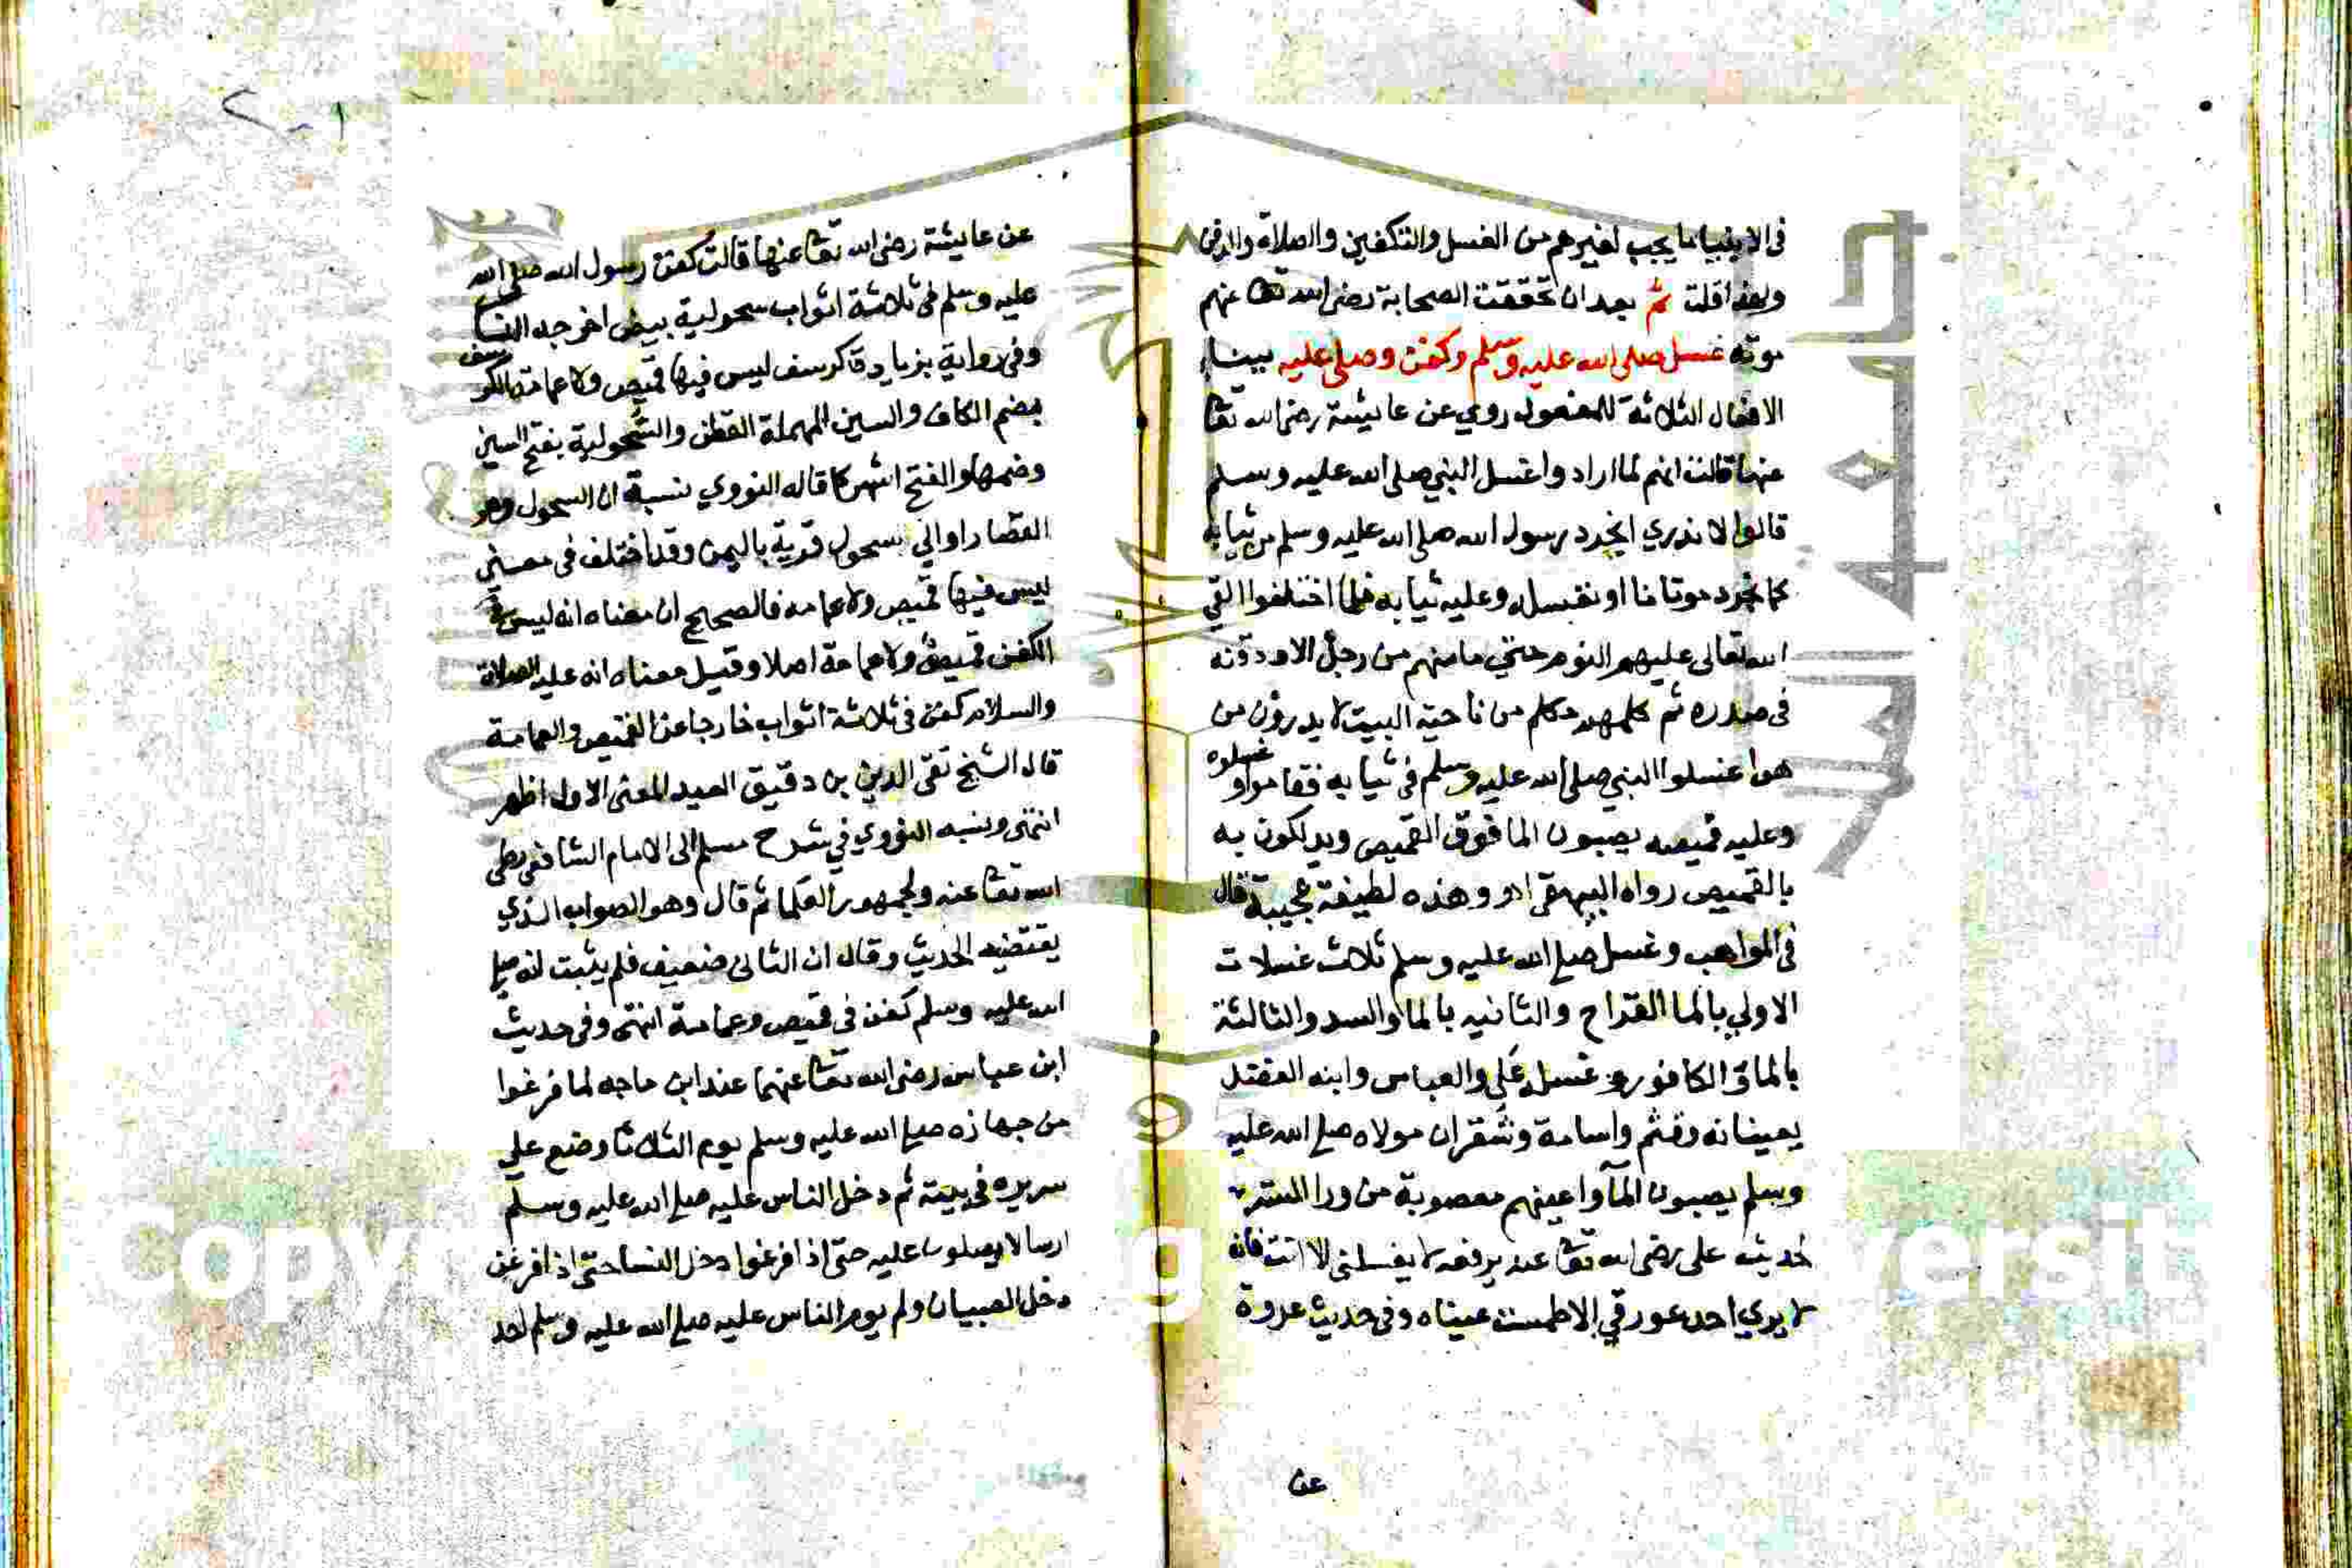 في الانبيا ما يجب لغيرهم من الغسل والتكفين والصلاة والدفن
ولهذا قلت ثم بعد ان تحققت الصحابة رضي الله تعا عنهم
موته غسل صلى الله عليه وسلم وكفن وصلى عليه ببناء
الافعال الثلاثة للمفعول روي عن عايشة رضي الله تعا
عنها قالت انهم لما ارادوا غسل النبي صلى الله عليه وسلم
قالوا لا ندري انجرد رسول الله صلى الله عليه وسلم من ثيابه
كما نجرد موتانا او نغسله وعليه ثيابه فلما اختلفوا القى
الله تعالى عليهم النوم حتى ما منهم من رجل الا ودقنه
في صدره ثم كلمهم مكلم من ناحية البيت لا يدرون من
هو اغسلوا النبي صلى الله عليه وسلم في ثيابه فقاموا وغسلوه
وعليه قميصه يصبون الما فوق القميص ويدلكونه
بالقميص رواه البيهقي وهذه لطيفة عجيبة قال
في المواهب وغسل صلى الله عليه وسلم ثلاث غسلات
الاولى بالما القراح والثانيه بالما والسدر والثالثة
بالما والكافور وغسله علي والعباس وابنه الفضل
يعينانه وقثم واسامة وشقران مولاه صلى الله عليه
وسلم يصبون الماء واعينهم معصوبة من ورا الستر
لحديث على رضي الله تعا عنه يرفعه لا يغسلنى الا انت فانه
لا يري احد عورتي الا طمست عيناه وفي حديث عروة
عن
٢٠١
عن عايشة رضي الله تعا عنها قالت كفن رسول الله صلى الله
عليه وسلم في ثلاثة اثواب سحولية بيض اخرجه النسا
وفي رواية بزيادة كرسف ليس فيها قميص ولا عمامة والكرسف
بضم الكاف والسين المهملة القطن والسحولية بفتح السين
وضمها والفتح اشهر كما قاله النووي نسبة الى السحول وهو
القصار او الي سحول قرية باليمن وقد اختلف في معنى
ليس فيها قميص ولا عمامه فالصحيح ان معناه انه ليس في
الكفن قميص ولا عمامة اصلا وقيل معناه انه عليه الصلاة
والسلام كفن في ثلاثة اثواب خارجا عن القميص والعمامة
قال الشيخ تقى الدين بن دقيق العيد المعنى الاول اظهر
انتهى ونسبه النووي في شرح مسلم الى الامام الشافعي رضى
الله تعا عنه ولجمهور العلما ثم قال وهو الصواب الذي
يقتضيه الحديث وقال ان الثانى ضعيف فلم يثبت انه صلى
الله عليه وسلم كفن في قميص وعمامة انتهى وفي حديث
ابن عباس رضي الله تعا عنهما عند ابن ماجه لما فرغوا
من جهازه صلى الله عليه وسلم يوم الثلاثا وضع على
سريره في بيته ثم دخل الناس عليه صلى الله عليه وسلم
ارسالا يصلون عليه حتى اذا فرغوا دخل النسا حتى اذا فرغن
دخل الصبيان ولم يوم الناس عليه صلى الله عليه وسلم احد